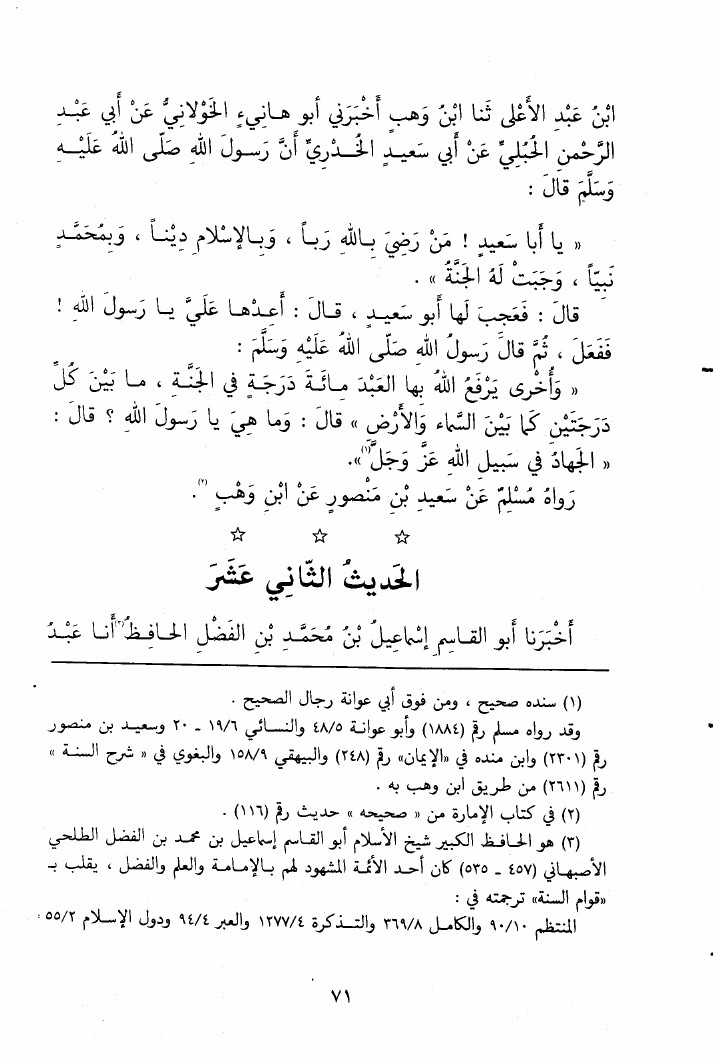 ابْنُ عَبْدِ الأَعْلى ثَنا ابْنُ وَهبٍ أَخْبَرَني أبو هـانِيءٍ الخَوْلانِيُّ عَنْ أَبي عَبْـدِ
الرَّحْمنِ الحُبُلِيِّ عَنْ أَبي سَعيـدٍ الخُـدْرِيِّ أَنَّ رَسـولَ اللهِ صَلّى اللهُ عَلَيْـهِ
وَسَلَّمَ قالَ :
« يا أَبا سَعيدٍ ! مَنْ رَضِيَ بِـاللهِ رَبـاً ، وَبـالإسْلامِ دِيْنـاً ، وَبِمُحَمَّـدٍ
نَبِيّاً ، وَجَبَتْ لَهُ الجَنَّةُ » .
قالَ : فَعَجِبَ لَها أَبو سَعيـدٍ ، قـالَ : أَعِـدْهـا عَلَيَّ يـا رَسولَ اللهِ !
فَفَعَلَ ، ثُمَّ قالَ رَسولُ اللهِ صَلّى اللهُ عَلَيْهِ وَسَلَّمَ :
« وَأُخْرى يَرْفَعُ اللهُ بِها العَبْدَ مـائَـةَ دَرَجَـةٍ في الجَنَّـةِ ، مـا بَيْنَ كُلِّ
دَرَجَتَيْنِ كَما بَيْنَ السَّماءِ وَالأَرْضِ » قالَ : وَما هِيَ يا رَسولَ اللهِ ؟ قالَ :
« الجِهادُ في سَبيلِ اللهِ عَزَّ وَجَلَّ(١)».
رَواهُ مُسْلِمٌ عَنْ سَعيدِ بْنِ مَنْصورٍ عَنْ ابْنِ وَهْبٍ (٢).
☆ ☆ ☆
الحَديثُ الثّانِي عَشَرَ
أَخْبَرَنا أَبو القـاسِمِ إسْماعيلُ بْنُ مُحَمَّـدِ بْنِ الفَضْلِ الحـافِـظُ(٣) أَنـا عَبْـدُ
(١) سنده صحيح ، ومن فوق أبي عوانة رجال الصحيح .
وقد رواه مسلم رقم (١٨٨٤) وأبو عوانـة ٤٨/٥ والنسـائي ١٩/٦ ـ ٢٠ وسعيـد بن منصور
رقم (٢٣٠١) وابن منده في «الإيمان» رقم (٢٤٨) والبيهقي ١٥٨/٩ والبغوي في « شرح السنة »
رقم (٢٦١١) من طريق ابن وهب به .
(٢) في كتاب الإمارة من « صحيحه » حديث رقم (١١٦) .
(٣) هو الحافـظ الكبير شيخ الأسلام أبو القـاسم إسماعيل بن محمـد بن الفضل الطلحي
الأصبهـاني (٤٥٧ ـ ٥٣٥) كان أحـد الأئمـة المشهود لهم بـالإمـامـة والعلم والفضل ، يقلب بـ
«قوام السنة» ترجمته في :
المنتظم ٩٠/١٠ والكامـل ٣٦٩/٨ والتـذكرة ١٢٧٧/٤ والعبر ٩٤/٤ ودول الإسـلام ٥٥/٢ :
٧١